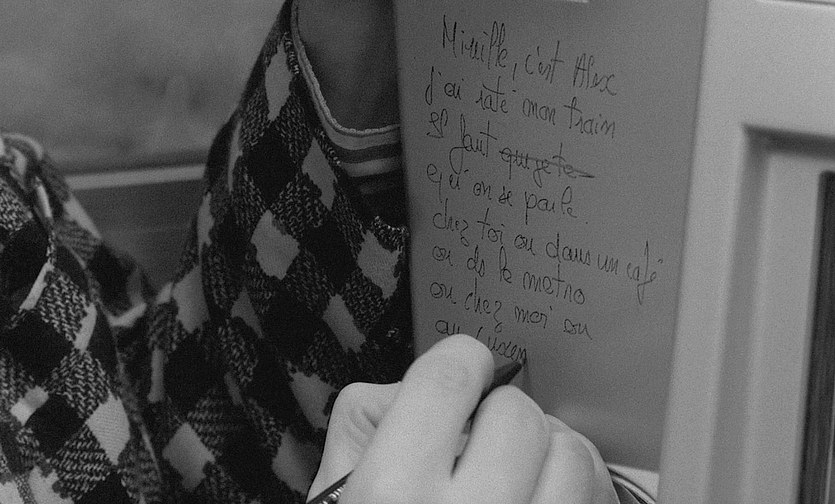 Mireille, c'est Alex
J'ai raté mon train
Il faut que je te
qu'on se parle.
chez toi ou dans un café
ou ds le metro
ou chez moi ou
au Luxem